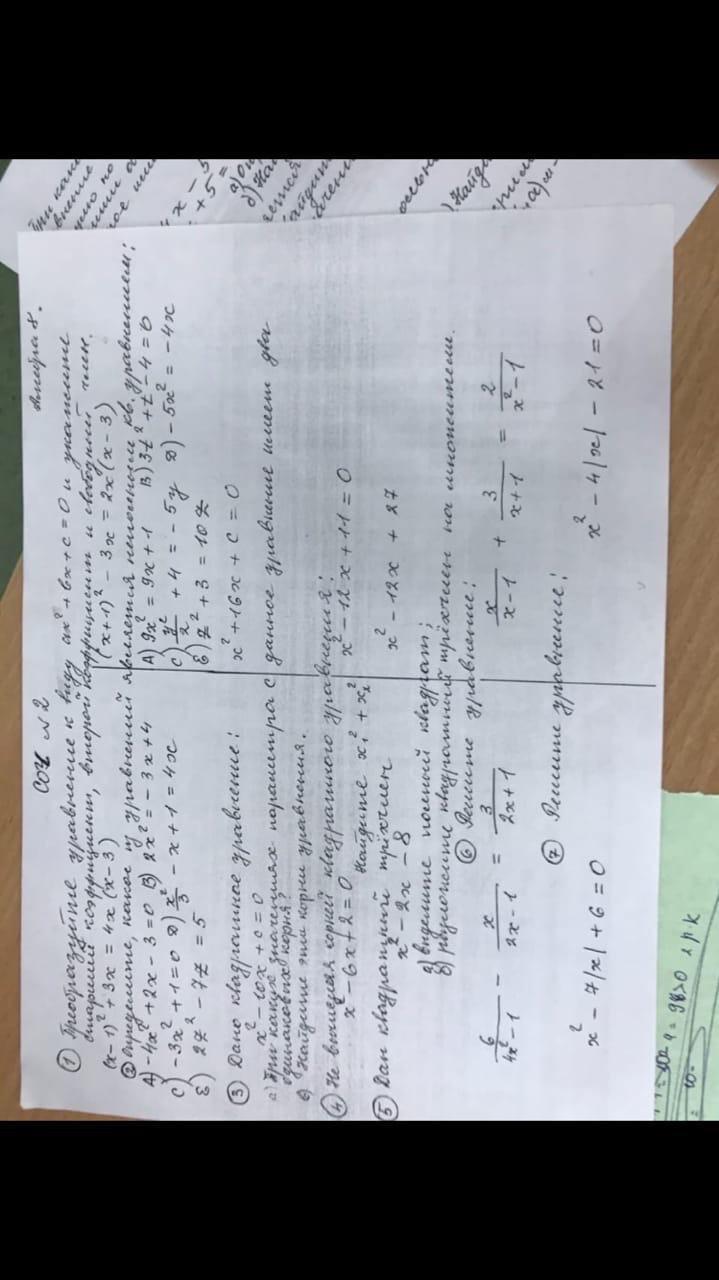 СОЧ №2 Алгебра 8.
① Преобразуйте уравнение к виду ax²+bx+c=0 и укажите
старший коэффициент, второй коэффициент и свободный член.
(x-1)²+3x=4x(x-3) (x+1)²-3x=2x(x-3)
② Определите, какое из уравнений является неполным кв. уравнением:
A) -4x²+2x-3=0 B) 2x²=-3x+4 A) 9x²=9x+1 B) 3t²+t-4=0
C) -3x²+1=0 D) x²/3 -x+1=4x C) y²/2 +4=-5y D) -5x²=-4x
E) 2z²-7z=5 E) z²+3=10z
③ Дано квадратное уравнение:
x²-10x+c=0 x²+16x+c=0
а) При каких значениях параметра с данное уравнение имеет два
одинаковых корня?
в) Найдите эти корни уравнения.
④ Не вычисляя корней квадратного уравнения:
x²-6x+2=0 x²-12x+11=0
Найдите x₁²+x₂²
⑤ Дан квадратный трёхчлен
x²-2x-8 x²-12x+27
а) выделите полный квадрат;
б) разложите квадратный трёхчлен на множители.
⑥ Решите уравнение:
6/(4x²-1) - x/(2x-1) = 3/(2x+1) x/(x-1) + 3/(x+1) = 2/(x²-1)
⑦ Решите уравнение:
x²-7|x|+6=0 x²-4|x|-21=0